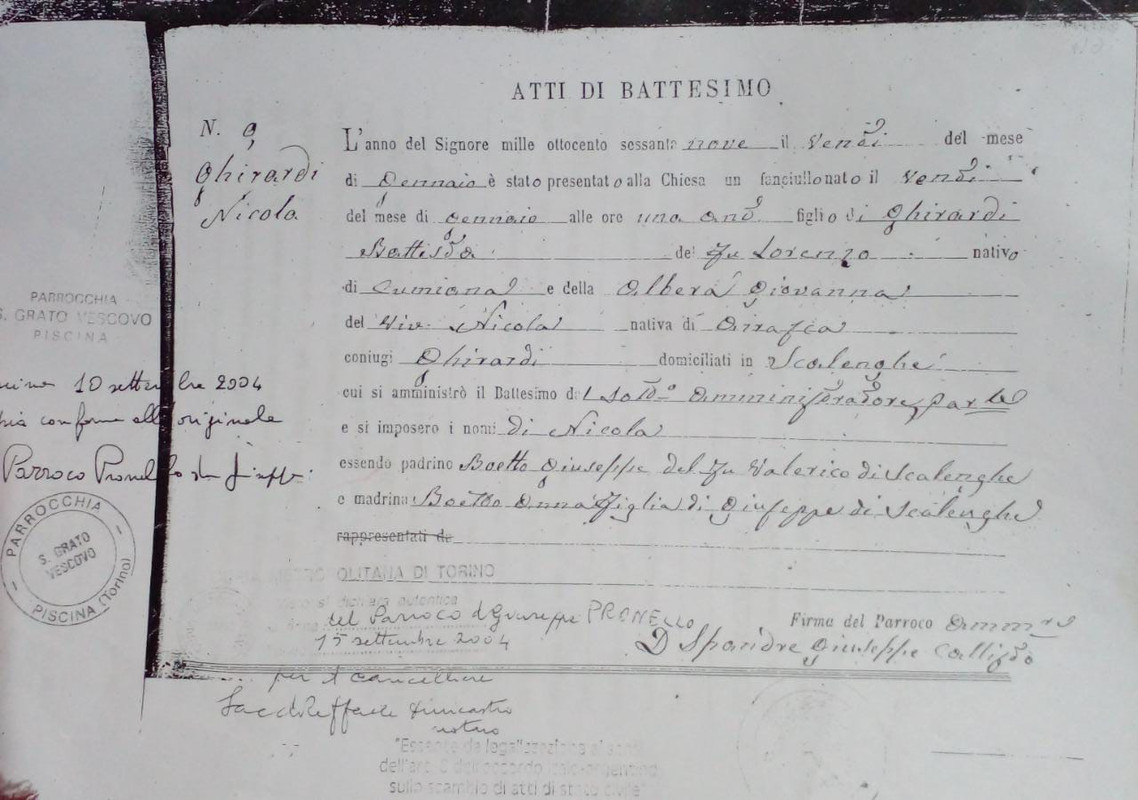 ATTI DI BATTESIMO
N. 9
Ghirardi
Nicola
L'anno del Signore mille ottocento sessanta nove il Venti del mese
di Gennaio è stato presentato alla Chiesa un fanciullo nato il Venti
del mese di Gennaio alle ore una ant figlio di Ghirardi
Battista del fu Lorenzo nativo
di Cumiana e della Alberá Giovanna
del viv. Nicola nativa di
coniugi Ghirardi domiciliati in Scalenghe
cui si amministrò il Battesimo dal Amministratore par
e si imposero i nomi di Nicola
essendo padrino Boetto Giuseppe del fu Valerico di Scalenghe
e madrina Boetto Anna figlia di Giuseppe di Scalenghe
rappresentati da
Firma del Parroco
D Spandre Giuseppe Callisto
PARROCCHIA
S. GRATO VESCOVO
PISCINA
10 settembre 2004
conforme all'originale
Parroco
PARROCCHIA
S. GRATO
VESCOVO
PISCINA (Torino)
OLITANA DI TORINO
si dichiara autentica
del Parroco d Giuseppe PRONELLO
15 settembre 2004
per il cancelliere
notaro
"Esente da legalizzazione ai sensi
dell'art. dell'accordo italo-argentino
sullo scambio di atti di stato civile"